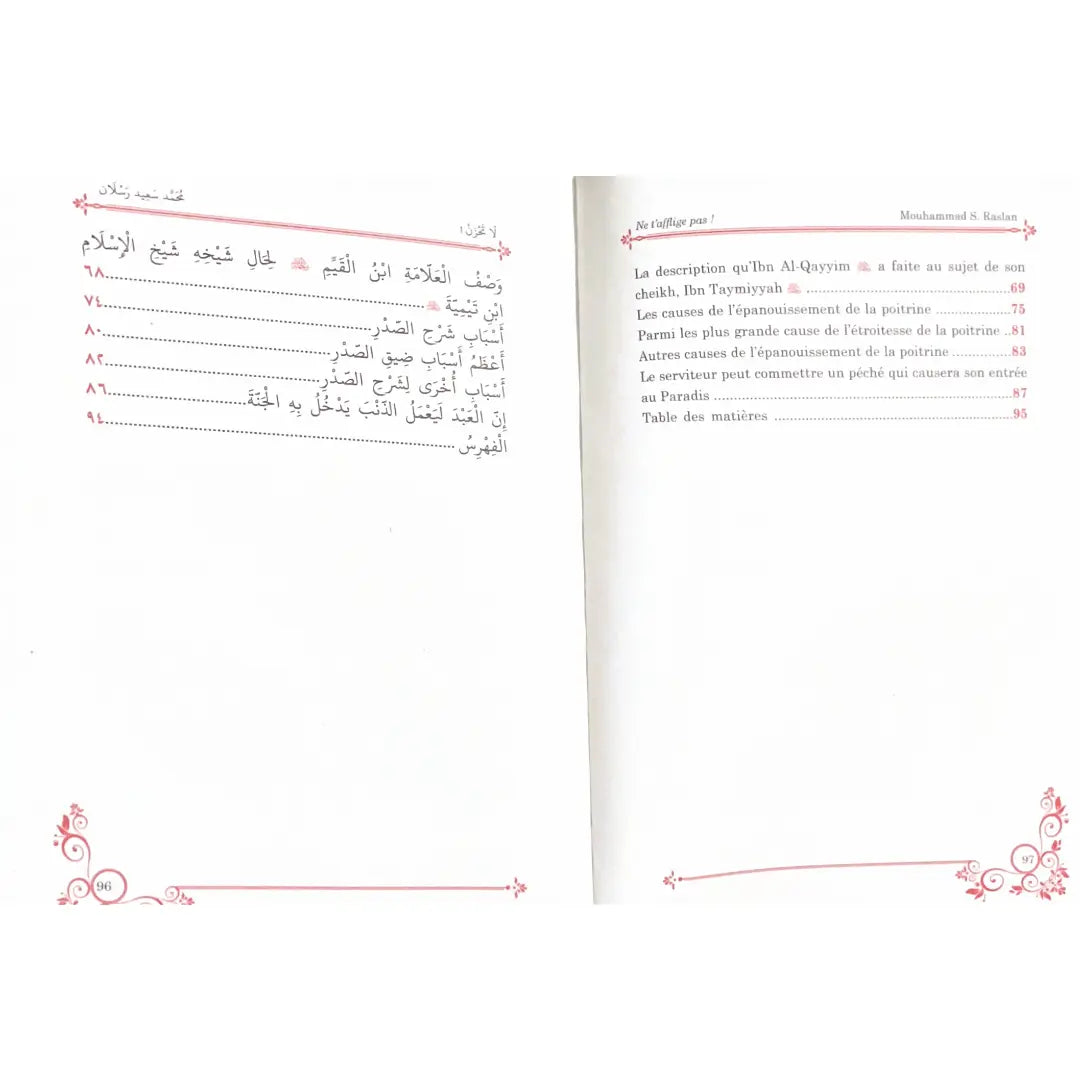 مُحَمَّد سَعِيد رَسْلَان
لَا تَحْزَنْ !
وَصْفُ الْعَلَّامَةِ ابْنُ الْقَيِّمِ لِحَالِ شَيْخِهِ شَيْخِ الْإِسْلَامِ
ابْنِ تَيْمِيَّةَ ..... ٦٨
أَسْبَابِ شَرْحِ الصَّدْرِ ..... ٧٤
أَعْظَمُ أَسْبَابِ ضِيقِ الصَّدْرِ ..... ٨٠
أَسْبَابِ أُخْرَى لِشَرْحِ الصَّدْرِ ..... ٨٢
إِنَّ الْعَبْدَ لَيَعْمَلُ الذَّنْبَ يَدْخُلُ بِهِ الْجَنَّةَ ..... ٨٦
الْفِهْرِسُ ..... ٩٤
96
Ne t'afflige pas !
Mouhammad S. Raslan
La description qu'Ibn Al-Qayyim a faite au sujet de son
cheikh, Ibn Taymiyyah ..... 69
Les causes de l'épanouissement de la poitrine ..... 75
Parmi les plus grande cause de l'étroitesse de la poitrine ..81
Autres causes de l'épanouissement de la poitrine ..... 83
Le serviteur peut commettre un péché qui causera son entrée
au Paradis ..... 87
Table des matières ..... 95
97